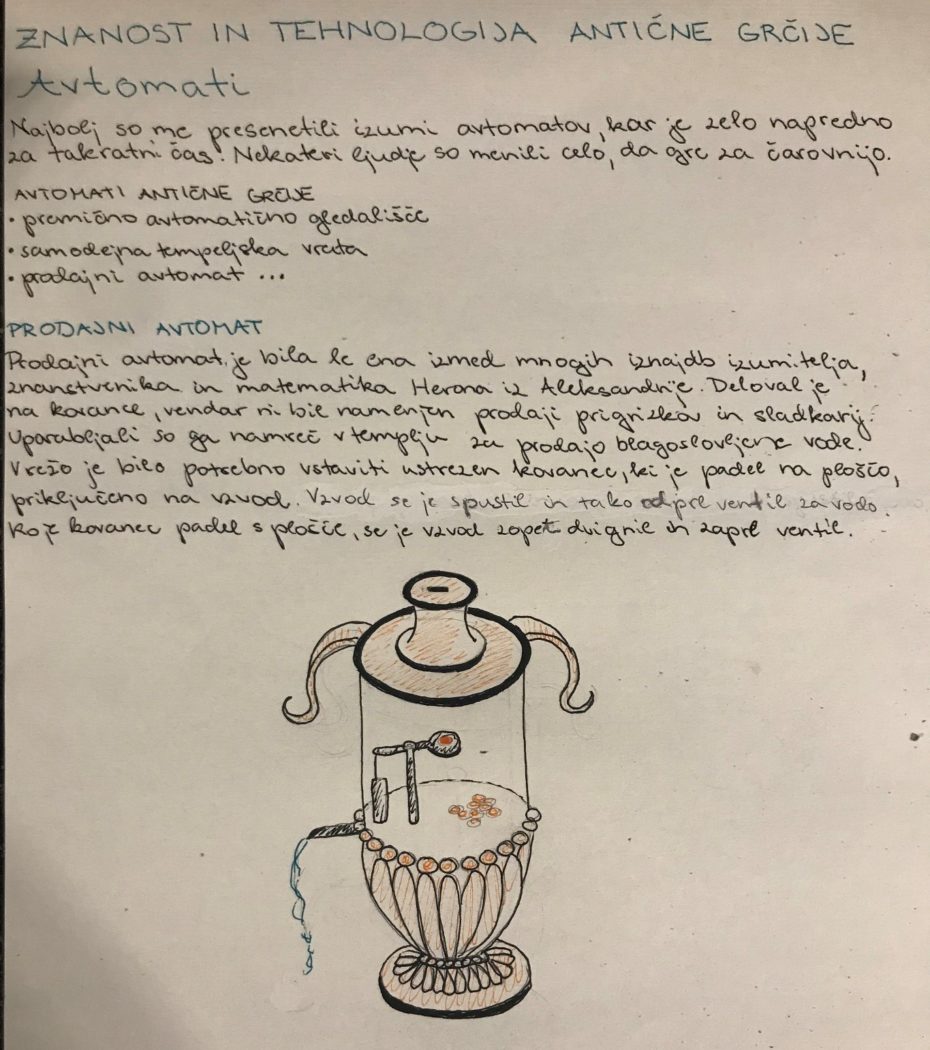 ZNANOST IN TEHNOLOGIJA ANTIČNE GRČIJE
Avtomati
Najbolj so me presenetili izumi avtomatov, kar je zelo napredno
za takratni čas. Nekateri ljudje so menili celo, da gre za čarovnijo.
AVTOMATI ANTIČNE GRČIJE
• premično avtomatično gledališče
• samodejna tempeljska vrata
• prodajni avtomat ...
PRODAJNI AVTOMAT
Prodajni avtomat je bila le ena izmed mnogih iznajdb izumitelja,
znanstvenika in matematika Herona iz Aleksandrije. Deloval je
na kovance, vendar ni bil namenjen prodaji prigrizkov in sladkarij.
Uporabljali so ga namreč v templju za prodajo blagoslovljene vode.
V režo je bilo potrebno vstaviti ustrezen kovanec, ki je padel na ploščo,
priključeno na vzvod. Vzvod se je spustil in tako odprl ventil za vodo.
Ko je kovanec padel s plošče, se je vzvod zopet dvignil in zaprl ventil.